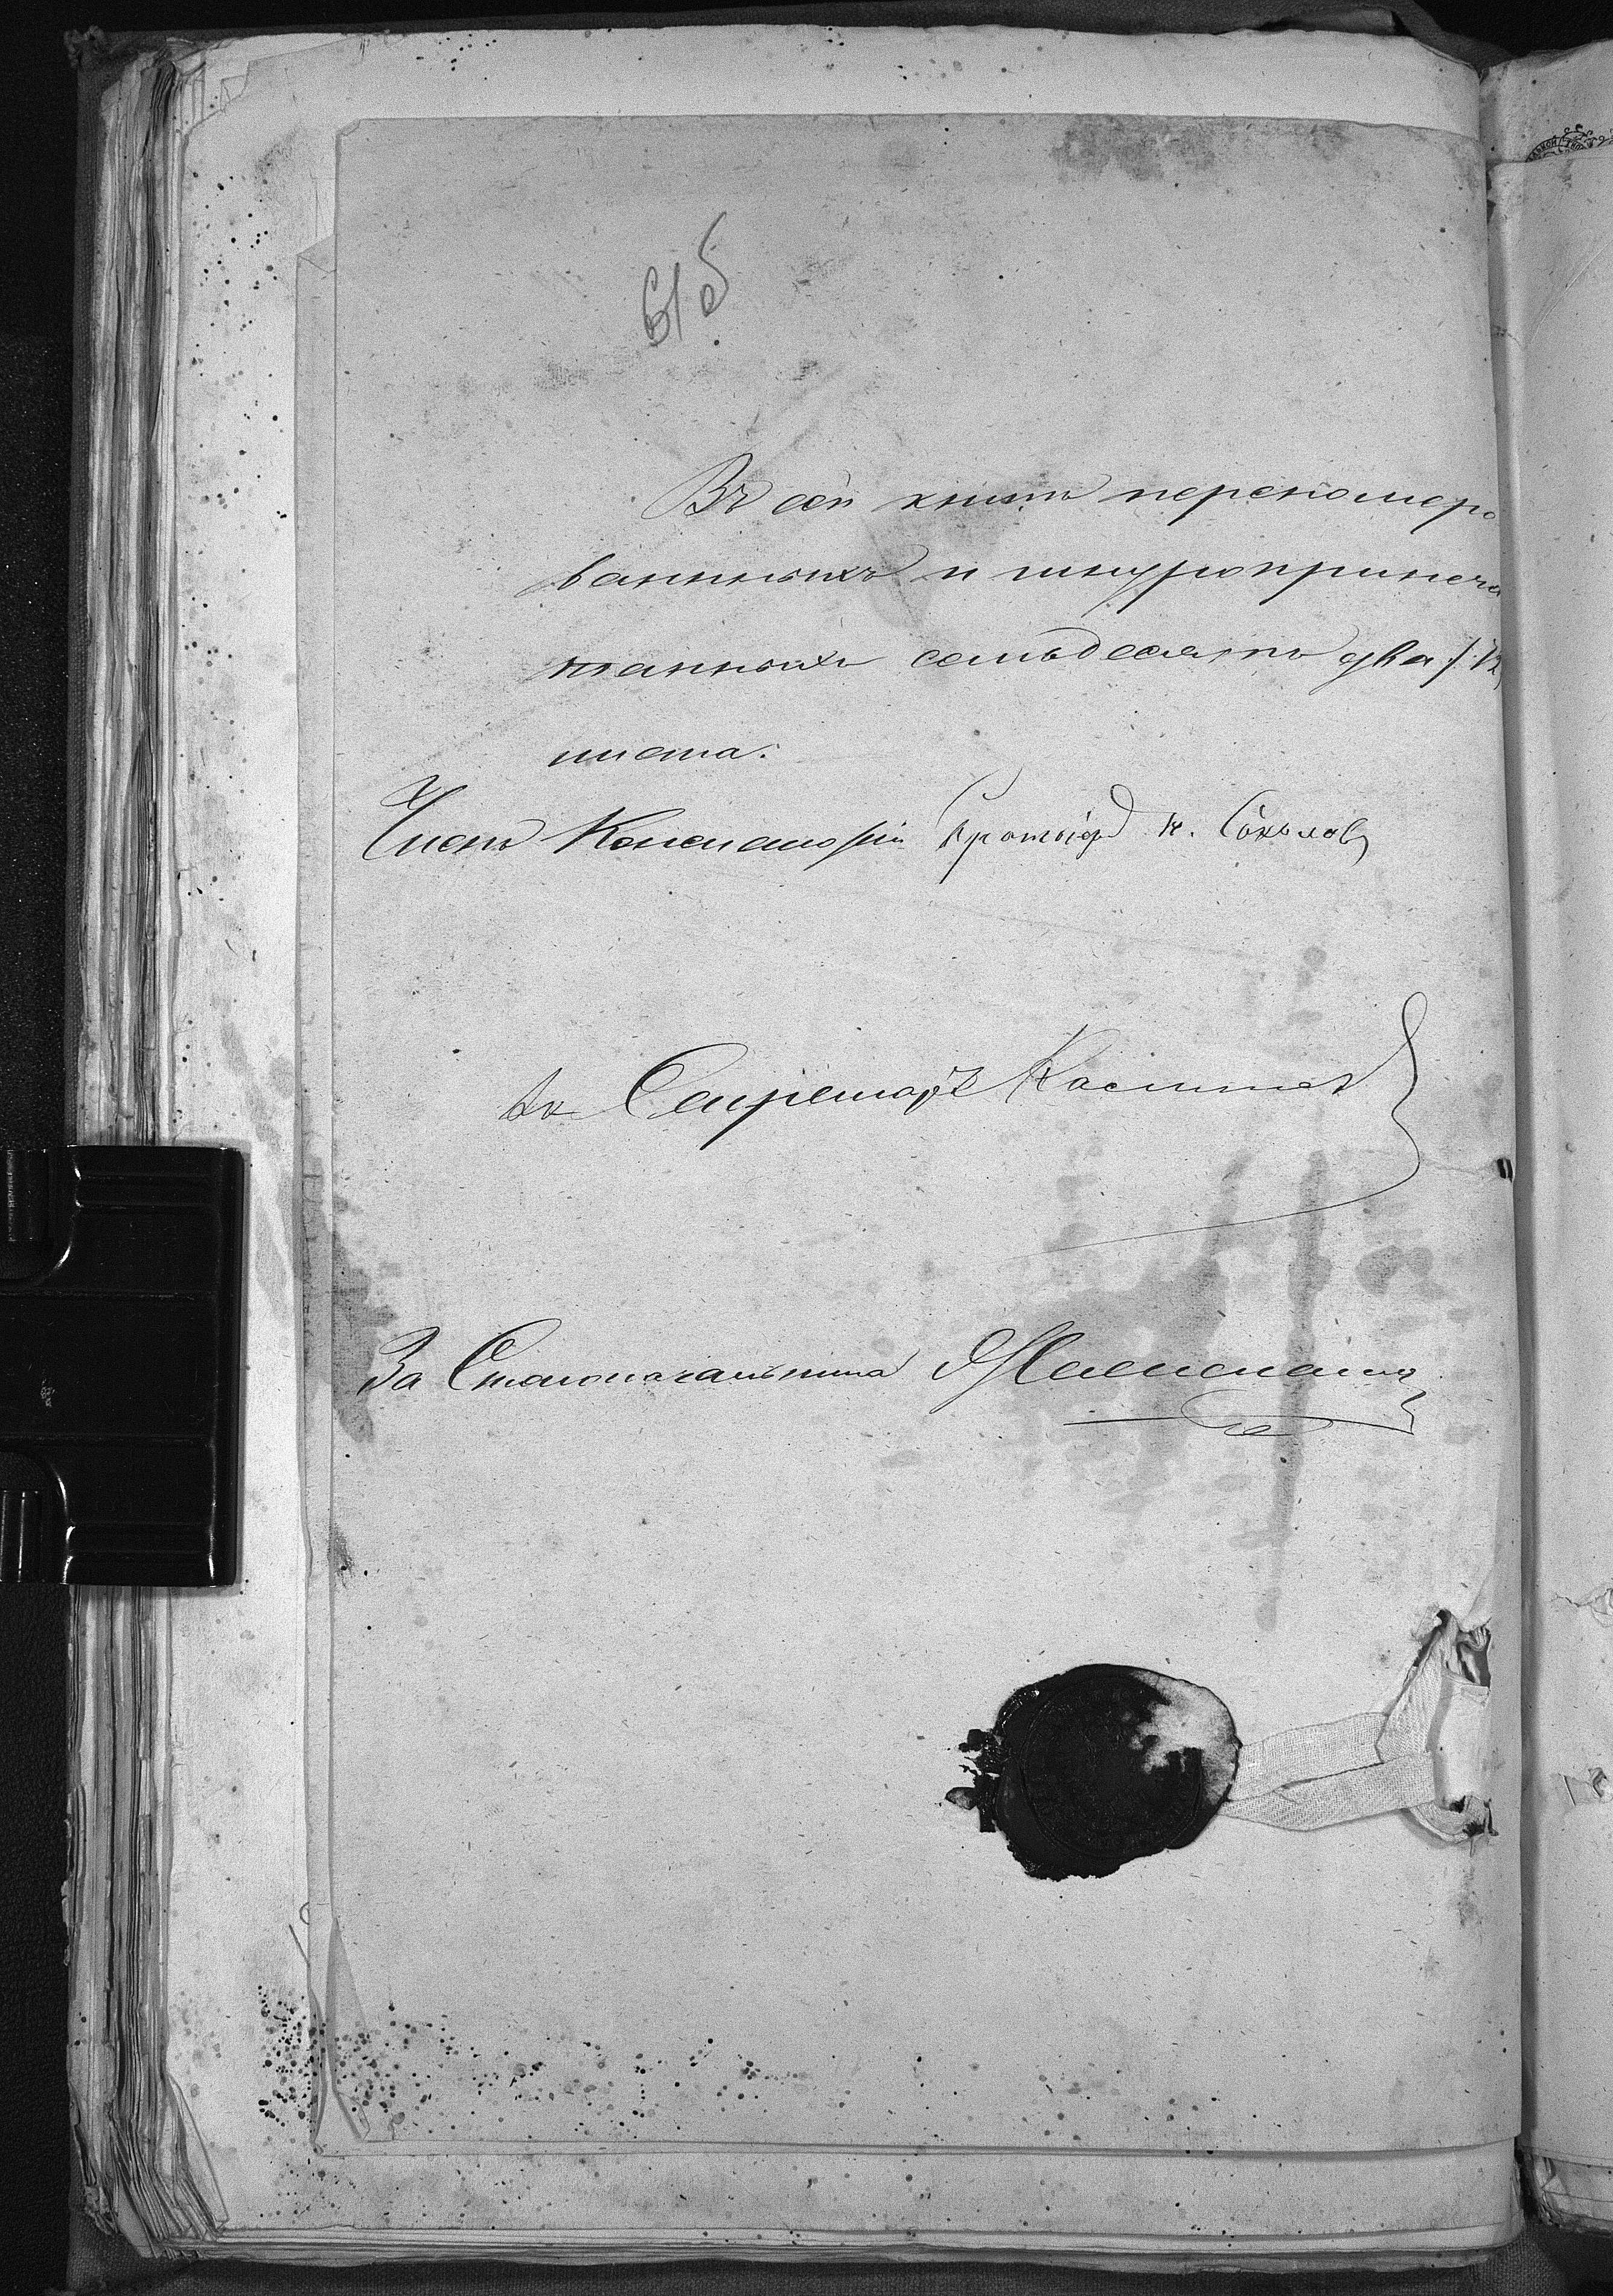 61 об
Въ сей книгѣ перенумеро
ванныхъ и шнуроприпеча
танныхъ семьдесятъ два /72/
листа.
Членъ Консисторіи Протоіерей Н. Соколовъ
Секретарь
За Столоначальника